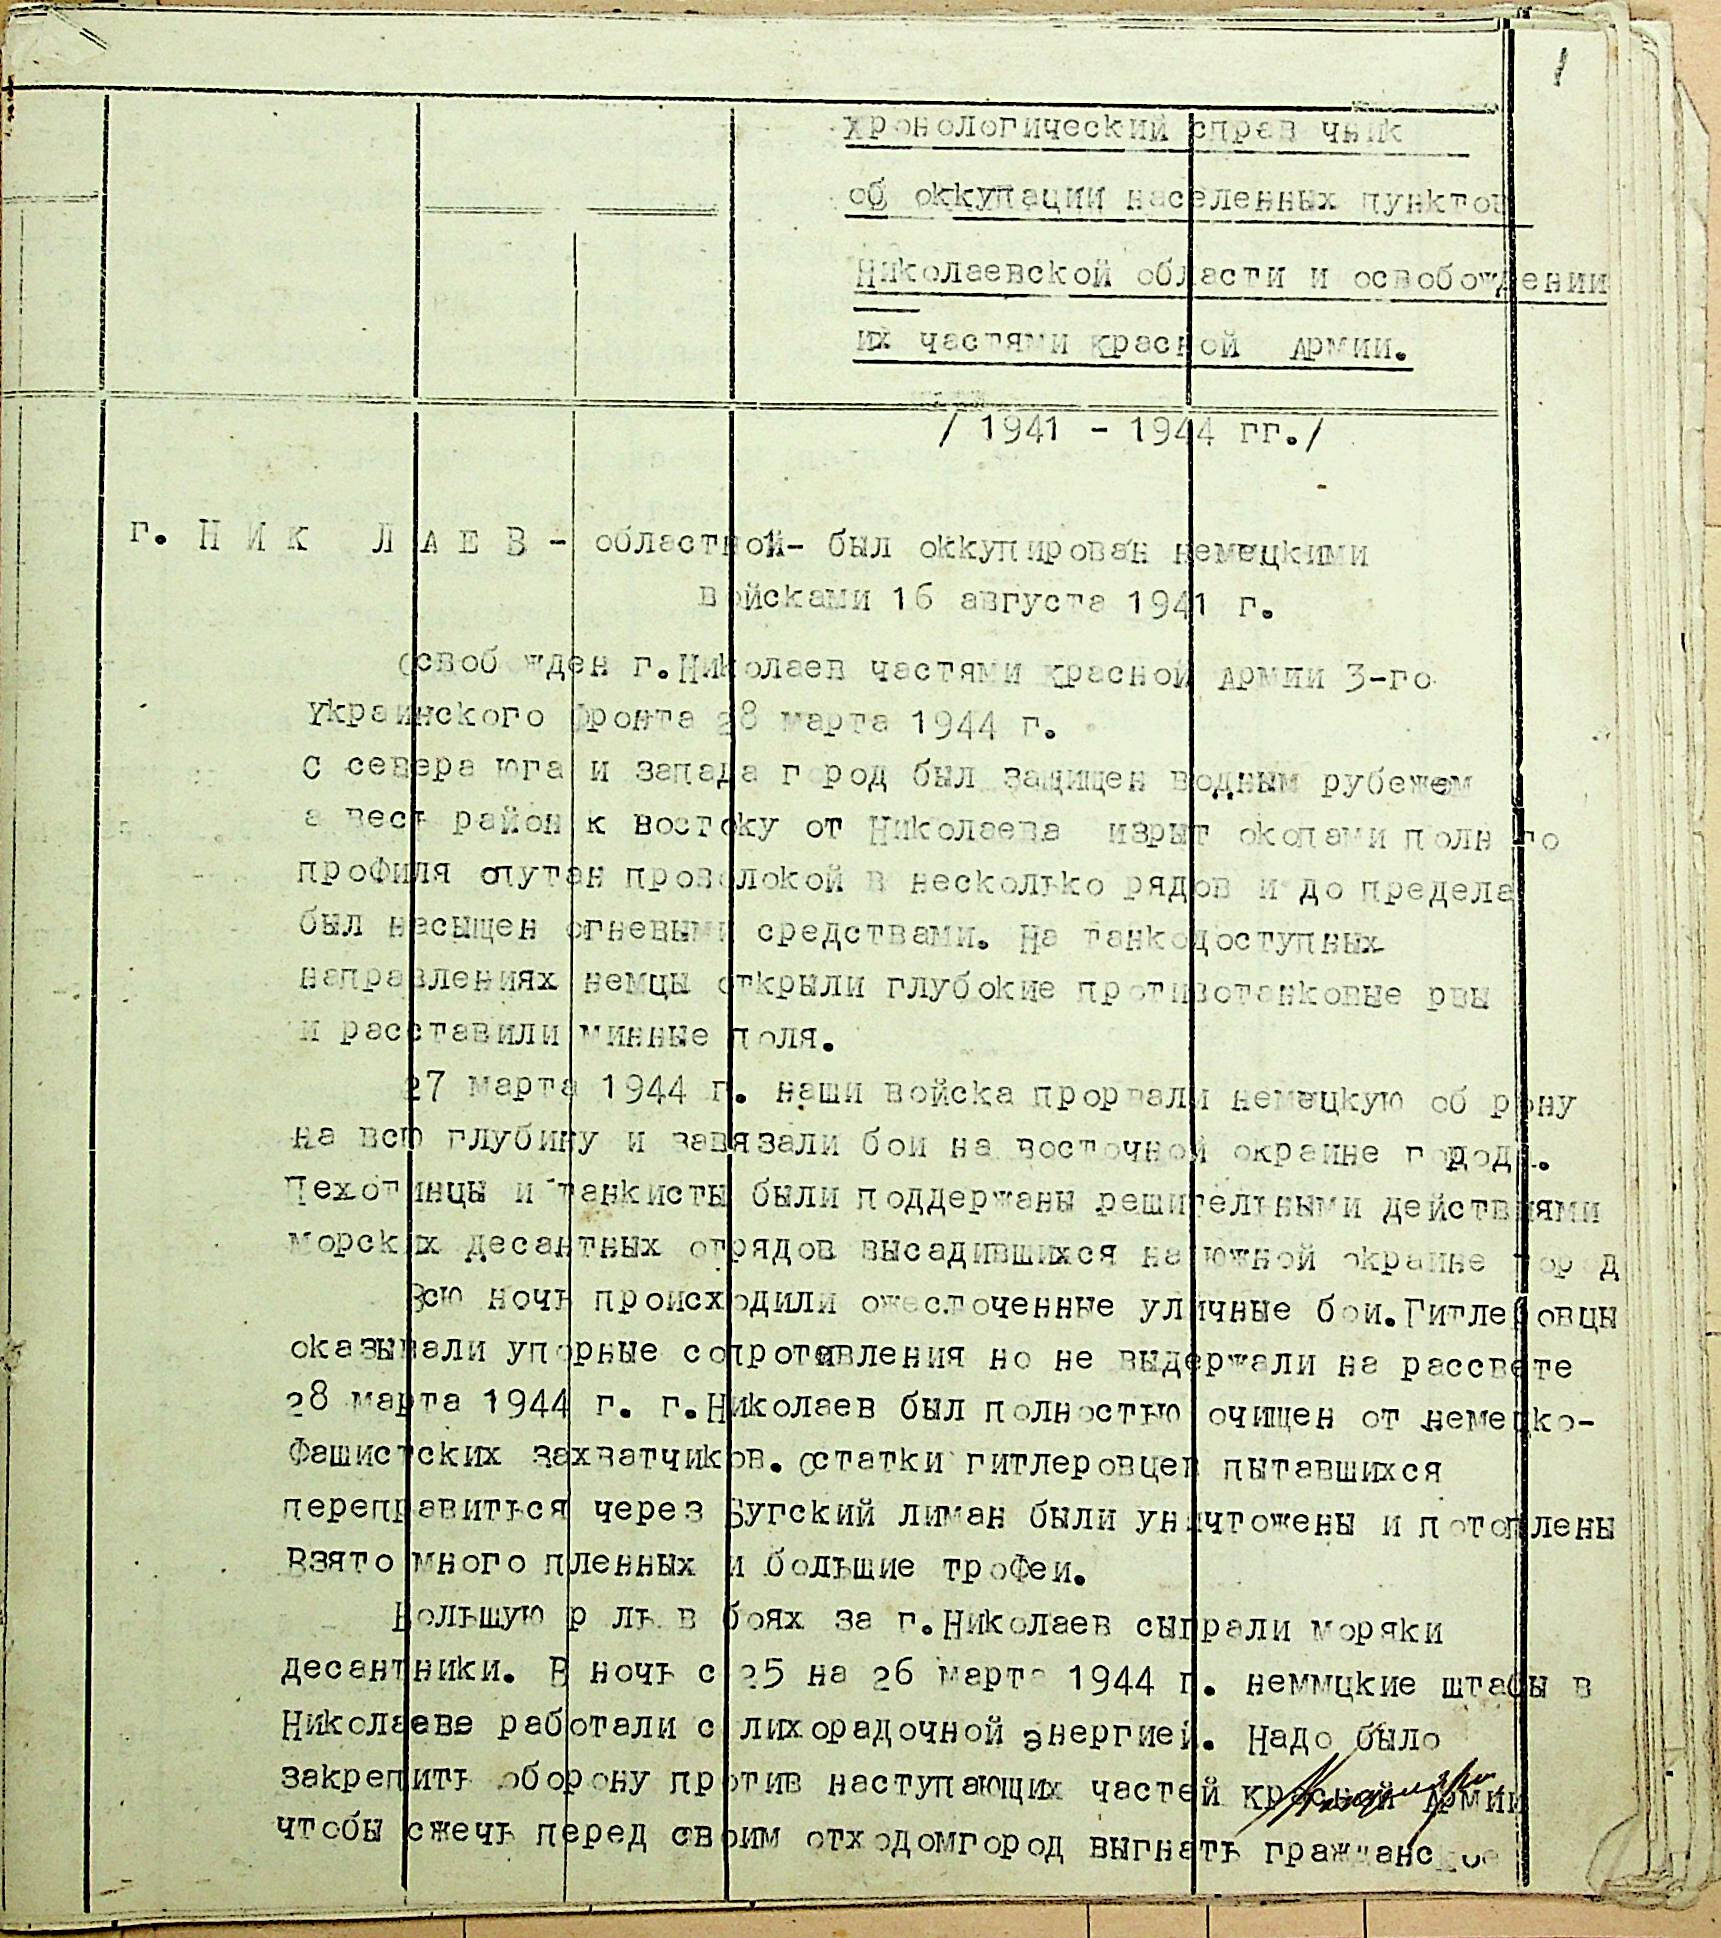 1
хронологический справ чник
об оккупации населенных пунктов
Николаевской области и освобождении
их частями красной Армии.
/ 1941 - 1944 гг./
г. Н И К Л А Е В - областной- был оккупирован немецкими
войсками 16 августа 1941 г.
Освоб жден г.Николаев частями красной Армии 3-го
Украинского фронта 28 марта 1944 г.
С севера юга и запада город был защищен водным рубежем
а весь район к востоку от Николаева изрыт окопами полн го
профиля опутан проволокой в несколько рядов и до предела
был насыщен огневыми средствами. На танкодоступных
направлениях немцы открыли глубокие противотанковые рвы
и расставили минные поля.
27 марта 1944 г. наши войска прорвали немецкую об рону
на всю глубину и завязали бои на восточной окраине города.
Пехотинцы и танкисты были поддержаны решительными действиями
морских десантных отрядов высадившихся на южной окраине город
Всю ночь происходили ожесточенные уличные бои.Гитлеровцы
оказывали упорные сопротивления но не выдержали на рассвете
28 марта 1944 г. г.Николаев был полностью очищен от немецко-
фашистских захватчиков. Остатки гитлеровцев пытавшихся
переправиться через Бугский лиман были уничтожены и потоплены
Взято много пленных и большие трофеи.
Большую р ль в боях за г.Николаев сыграли моряки
десантники. В ночь с 25 на 26 марта 1944 г. неммцкие штабы в
Николаеве работали с лихорадочной энергией. Надо было
закрепить оборону против наступающих частей красной Армии
чтобы сжечь перед своим отходомгород выгнать гражданское